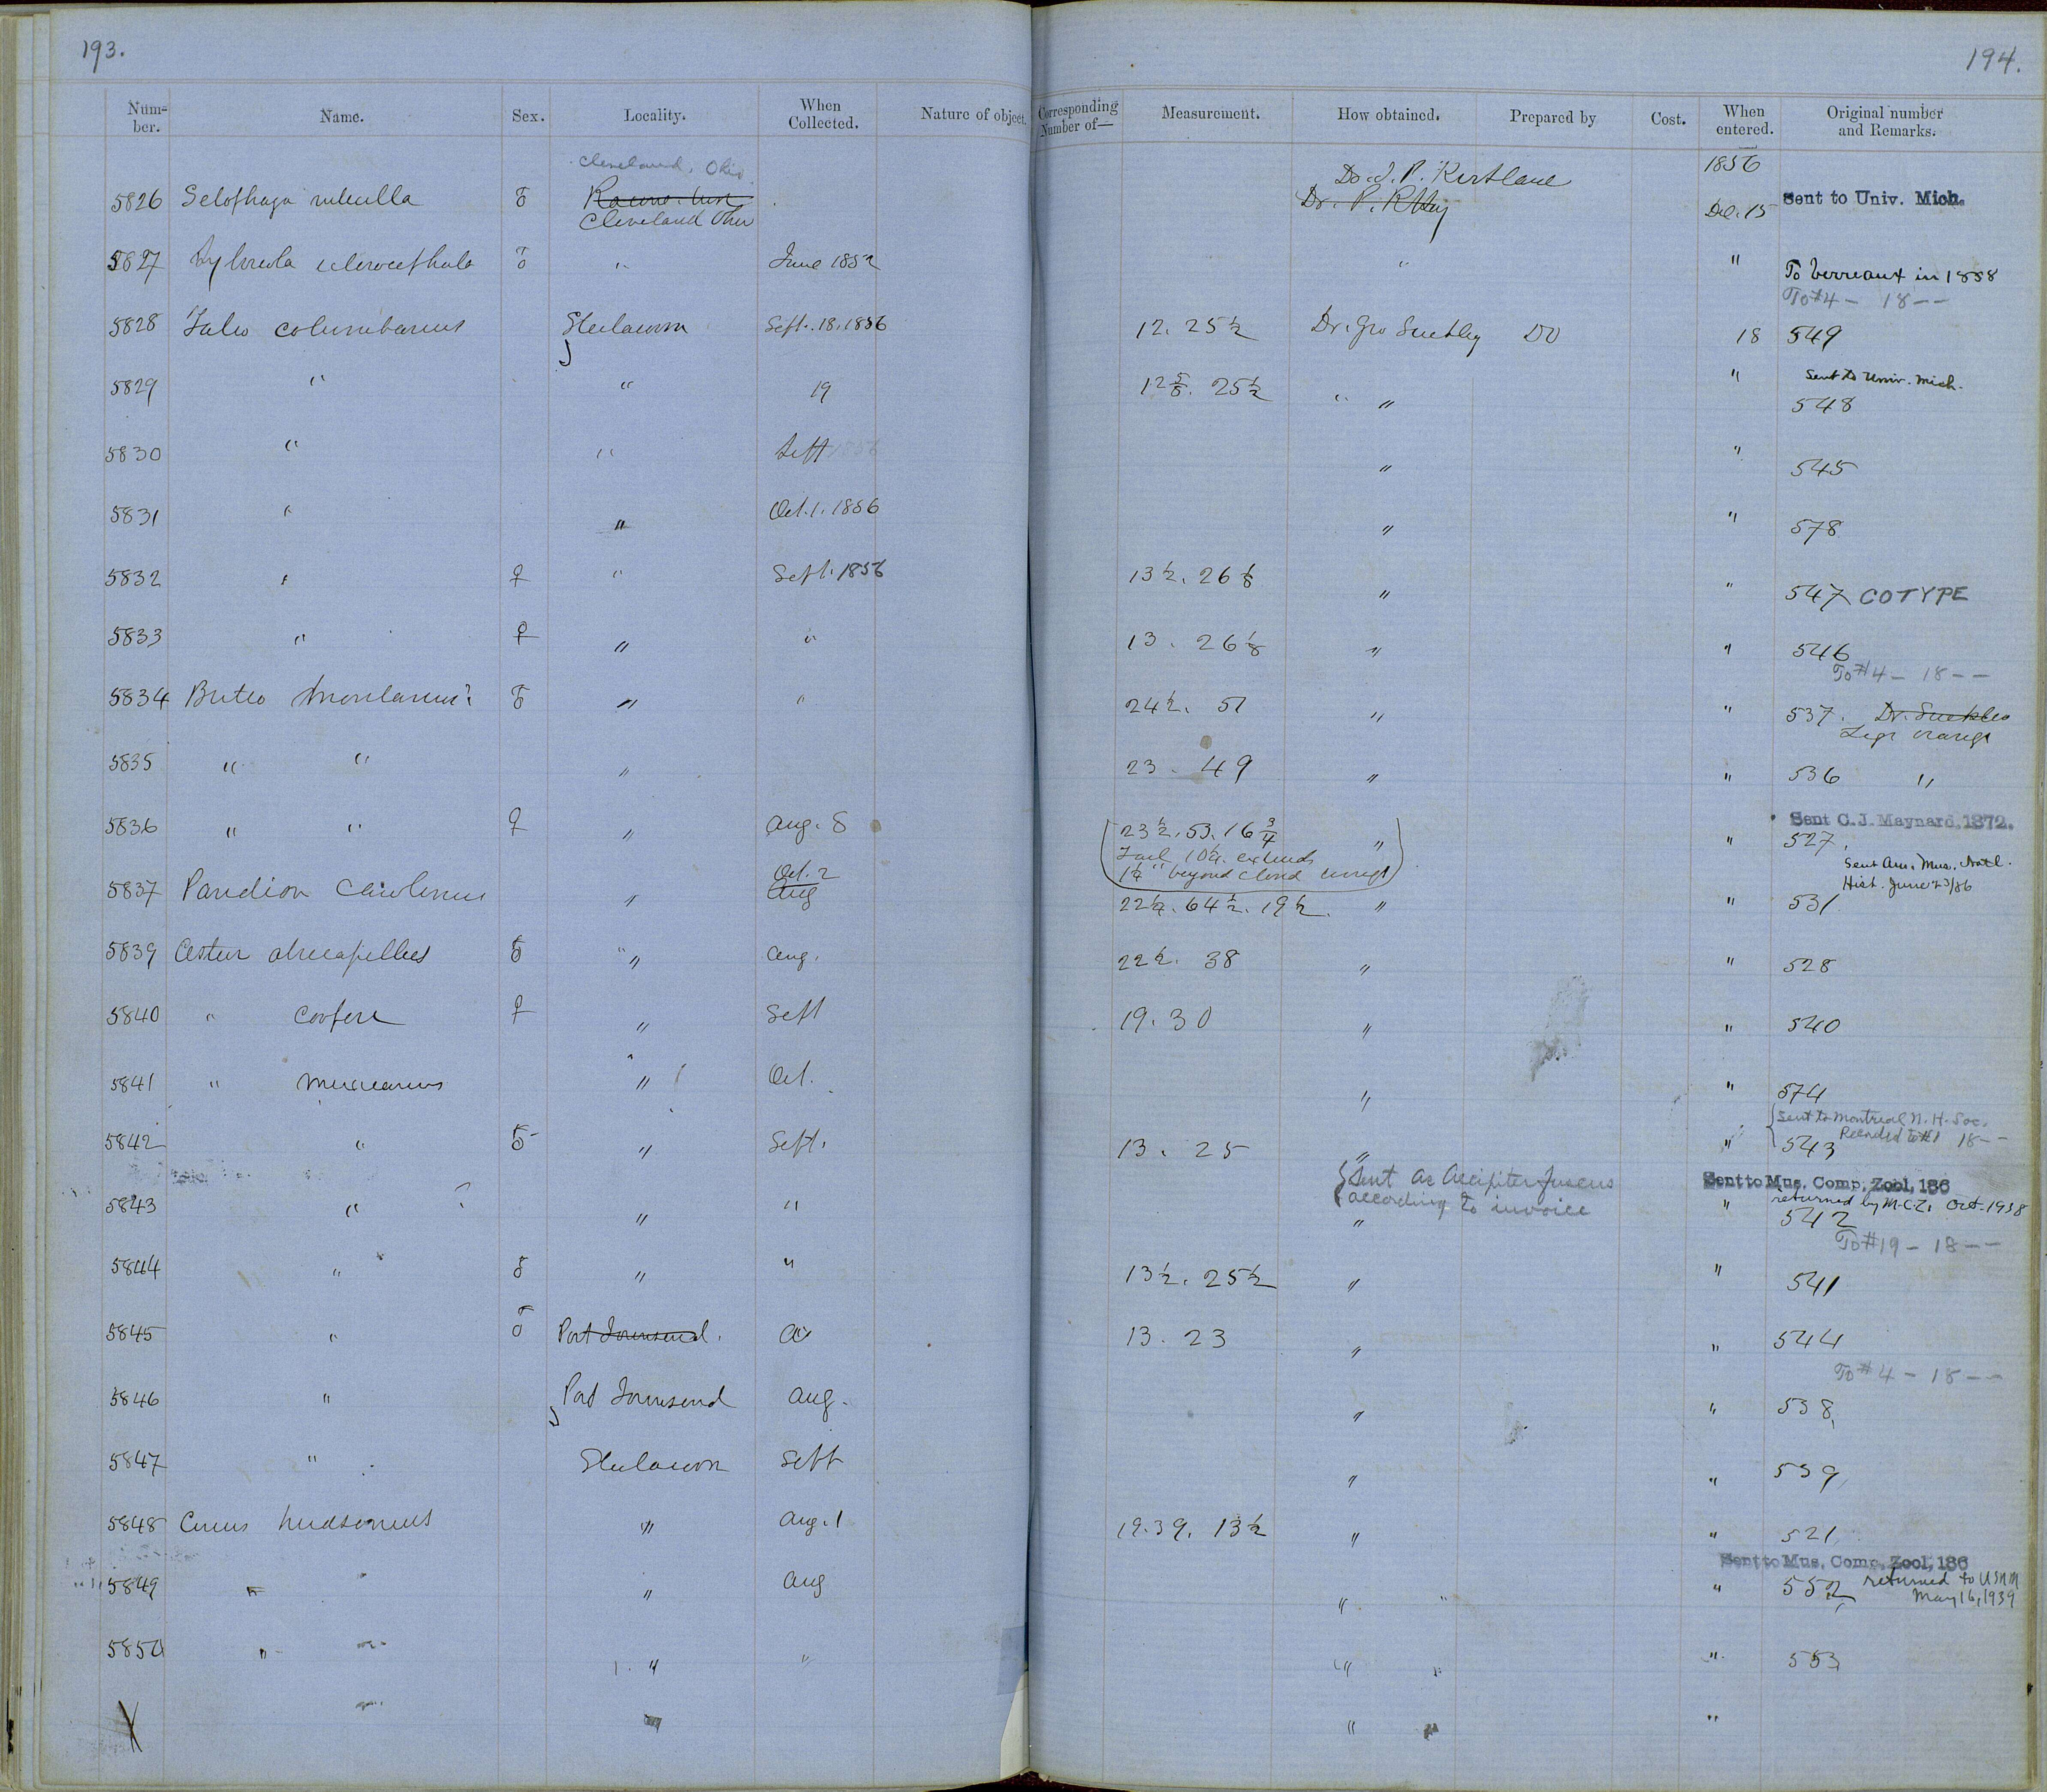 193.
194.
Num-ber. Name. Sex. Locality. When Collected. Nature of object. Corresponding Number of— Measurement. How obtained. Prepared by Cost. When entered. Original number and Remarks.
Cleveland, Ohio. 1856
5826 ♂ Cleveland Ohio Dr. J. P. Kirtland Dec. 15 Sent to Univ. Mich.
5827 ♂ " June 1852 " " To Verreaux in 1858
To #4 - 18 - -
5828 Falco columbarius Steilacoom Sept. 18, 1856 12. 25½ Dr. Geo Suckley DO 18 549
5829 " " 19 12⅝. 25½ " " " Sent to Univ. Mich.
548
5830 " " Sept 1856 " " 545
5831 " " Oct. 1. 1856 " " 578
5832 " ♀ " Sept. 1856 13½. 26⅛ " " 547 COTYPE
5833 " ♀ " " 13. 26⅛ " " 546
To #4 - 18 - -
5834 Buteo montanus? ♂ " " 24½. 51 " " 537. Dr. Suckley
Legs orange
5835 " " " 23. 49 " " 536 "
Sent C. J. Maynard, 1872.
5836 " " ♀ " Aug. 8 23½. 53. 16¾ " " 527.
Tail 10¼. extends
1¼" beyond closed wings
Sent Am. Mus. Natl.
Hist. June 23/86
5837 Pandion Carolinus " Oct. 2 Aug 22¼. 64½. 19½. " " 531
5839 Astur atricapillus ♂ " " Aug. 22½. 38 " " 528
5840 " Cooperi ♀ " Sept 19. 30 " " 540
5841 " mexicanus " Oct. " " 574
Sent to Montreal N. H. Soc.
5842 " ♂ " Sept. 13. 25 " " 543 18 - -
Sent as Accipiter fuscus
according to invoice
Sent to Mus. Comp. Zool, 186
returned by M.C.Z. Oct. 1938
5843 " " " " " 542
To #19 - 18 - -
5844 " ♂ " " 13½. 25½ " " 541
5845 " ♂ Port Townsend. 13. 23 " " 544
To #4 - 18 - -
5846 " Port Townsend Aug. " " 538
5847 " Steilacoom Sept " " 539
5848 Circus hudsonius " Aug. 1 19. 39. 13½ " " 521
Sent to Mus. Comp. Zool, 186
5849 " " " Aug " " " 552 returned to USNM
May 16, 1939
5850 " " " " " " " 553
" " " " "